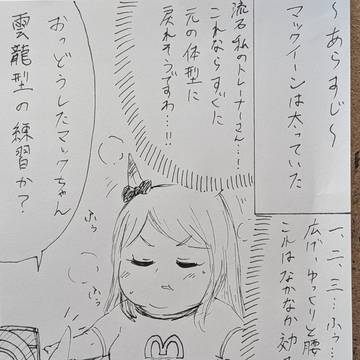 〜あらすじ〜
マックイーンは太っていた
一、二、三…ふぅ…
広げ、ゆっくりと腰
これはなかなか効
流石私のトレーナーさん…!
これならすぐに
元の体型に
戻れそうですわ…!!
おっどうしたマックちゃん
雲龍型の練習か?
ふぅ
ふぅ